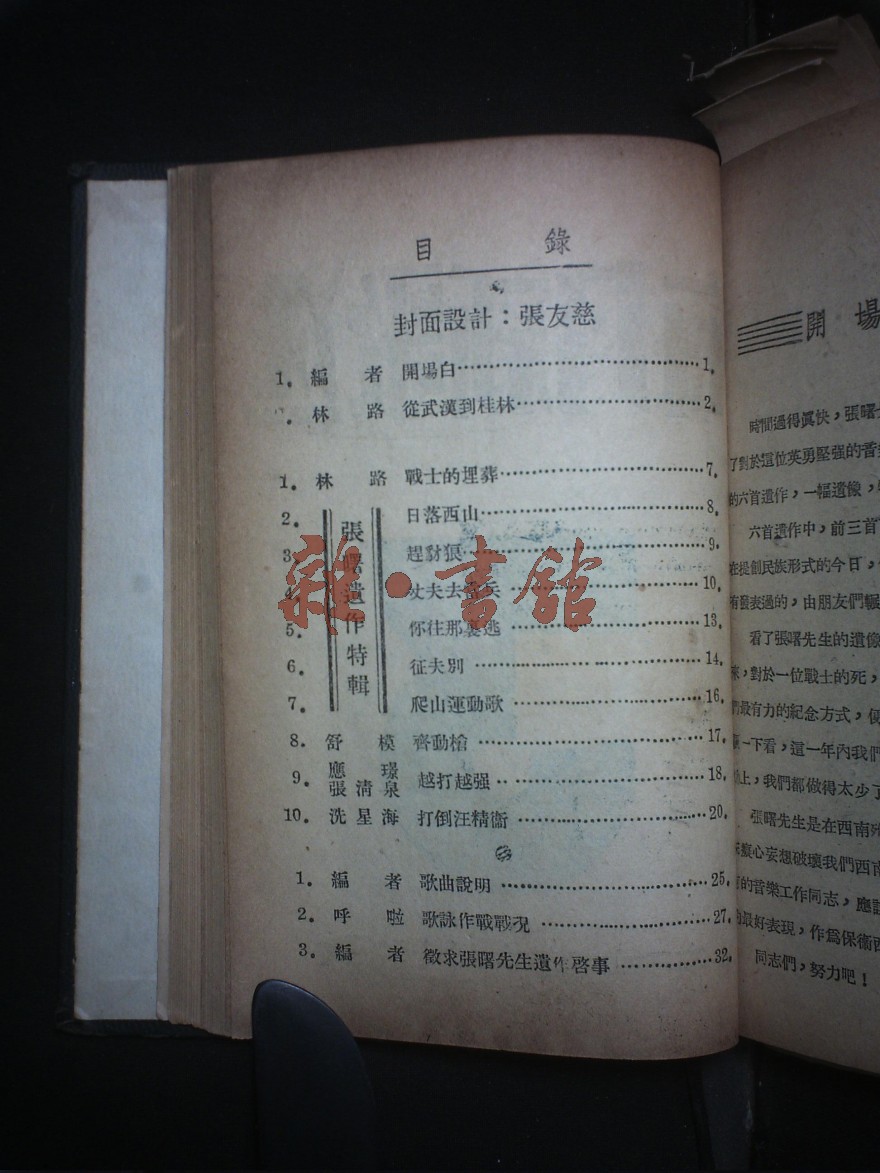 目 錄
封面設計：張友慈
1. 編者 開場白 1.
. 林路 從武漢到桂林 2.
1. 林路 戰士的埋葬 7.
張曙遺作特輯
2. 日落西山 8.
3 趕豺狼 9.
4. 丈夫去當兵 10.
5. 你往那裏逃 13.
6. 征夫別 14.
7. 爬山運動歌 16.
8. 舒模 齊動槍 17.
9. 應璟 張清泉 越打越强 18.
10. 洗星海 打倒汪精衞 20.
1. 編者 歌曲說明 25.
2. 呼啦 歌詠作戰戰況 27.
3. 編者 徵求張曙先生遺作啓事 32.
雜·書館
開場
時間過得眞快，張曙
了對於這位英勇堅强的
的六首遺作，一幅遺像，
六首遺作中，前三首
在提創民族形式的今日，
有發表過的，由朋友們輾
看了張曙先生的遺像
來，對於一位戰士的死，
們最有力的紀念方式，便
一下看，這一年內我們
上，我們都做得太少了
張曙先生是在西南
癡心妄想破壞我們西南
的音樂工作同志，應該
最好表現，作爲保衞西
同志們，努力吧！